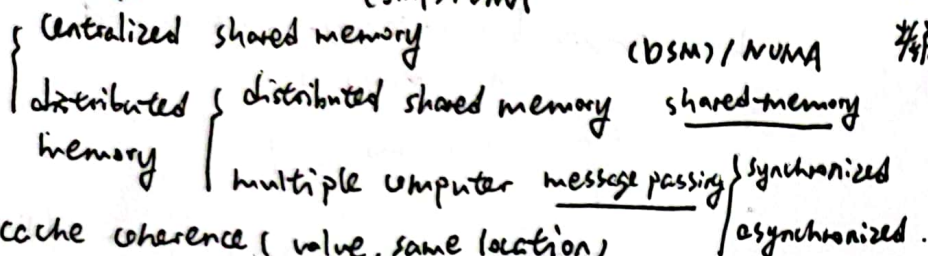 centralized shared memory
(DSM)/NUMA
distributed memory
distributed shared memory shared-memory
multiple computer message passing
synchronized
asynchronized.
cache coherence ( value, same location)